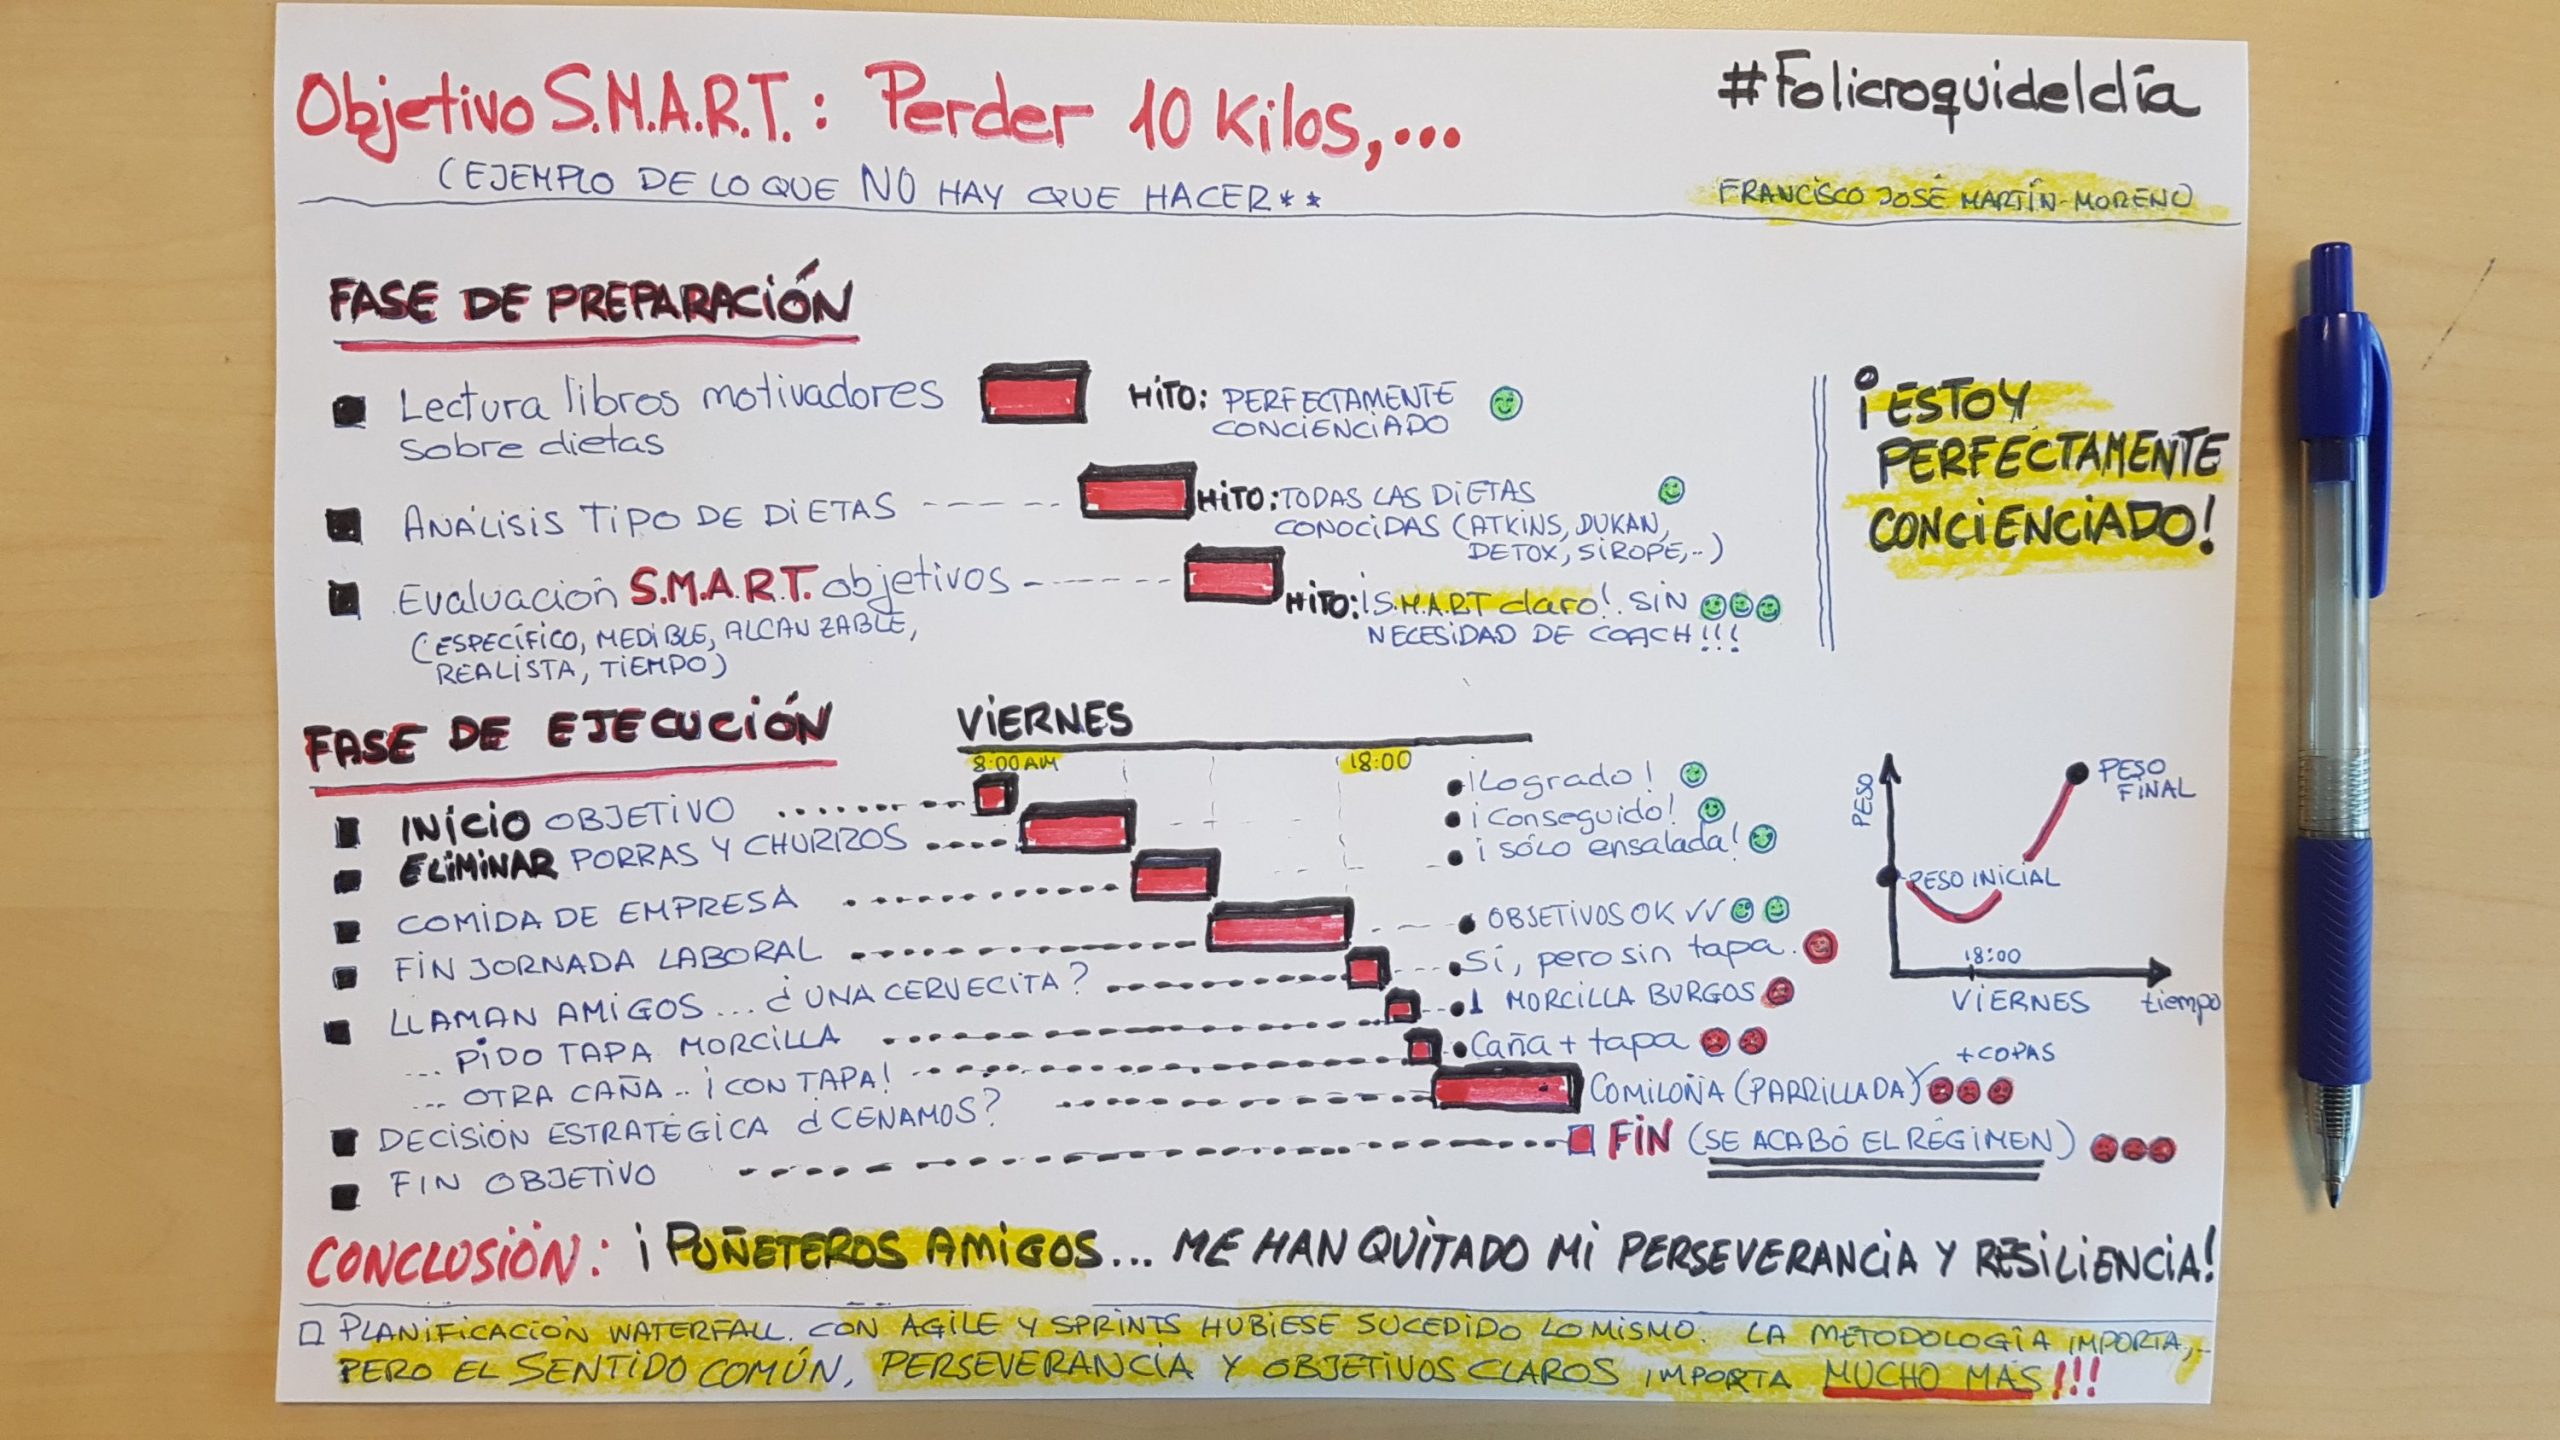 Objetivo S.M.A.R.T.: Perder 10 Kilos,...
(EJEMPLO DE LO QUE NO HAY QUE HACER**
#Folicroquideldía
FRANCISCO JOSÉ MARTÍN-MORENO
FASE DE PREPARACIÓN
Lectura libros motivadores
sobre dietas
HITO: PERFECTAMENTE
CONCIENCIADO
ANÁLISIS TIPO DE DIETAS
HITO: TODAS LAS DIETAS
CONOCIDAS (ATKINS, DUKAN,
DETOX, SIROPE,..)
Evaluación S.M.A.R.T. objetivos
(ESPECÍFICO, MEDIBLE, ALCANZABLE,
REALISTA, TIEMPO)
HITO: ¡S.M.A.R.T claro! SIN
NECESIDAD DE COACH!!!
¡ESTOY
PERFECTAMENTE
CONCIENCIADO!
FASE DE EJECUCIÓN
VIERNES
8:00AM
18:00
INICIO OBJETIVO
¡Logrado!
ELIMINAR PORRAS Y CHURROS
¡Conseguido!
COMIDA DE EMPRESA
¡sólo ensalada!
FIN JORNADA LABORAL
OBJETIVOS OK √√
LLAMAN AMIGOS... ¿UNA CERVECITA?
Sí, pero sin tapa.
... PIDO TAPA MORCILLA
1 MORCILLA BURGOS
... OTRA CAÑA.. ¡CON TAPA!
Caña + tapa
DECISIÓN ESTRATÉGICA ¿CENAMOS?
COMILOÑA (PARRILLADA)
+COPAS
FIN OBJETIVO
FIN (SE ACABÓ EL RÉGIMEN)
PESO
PESO
FINAL
PESO INICIAL
18:00
VIERNES
tiempo
CONCLUSIÓN: ¡PUÑETEROS AMIGOS... ME HAN QUITADO MI PERSEVERANCIA Y RESILIENCIA!
PLANIFICACIÓN WATERFALL. CON AGILE Y SPRINTS HUBIESE SUCEDIDO LO MISMO. LA METODOLOGÍA IMPORTA,..
PERO EL SENTIDO COMÚN, PERSEVERANCIA Y OBJETIVOS CLAROS IMPORTA MUCHO MÁS!!!